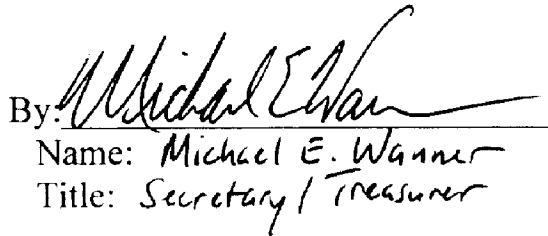 By: Michael E Wanner
Name: Michael E. Wanner
Title: Secretary / Treasurer